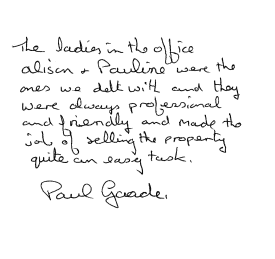 The ladies in the office
alison & Pauline were the
ones we delt with and they
were always professional
and friendly and made the
job of selling the property
quite an easy task.
Paul Goode.